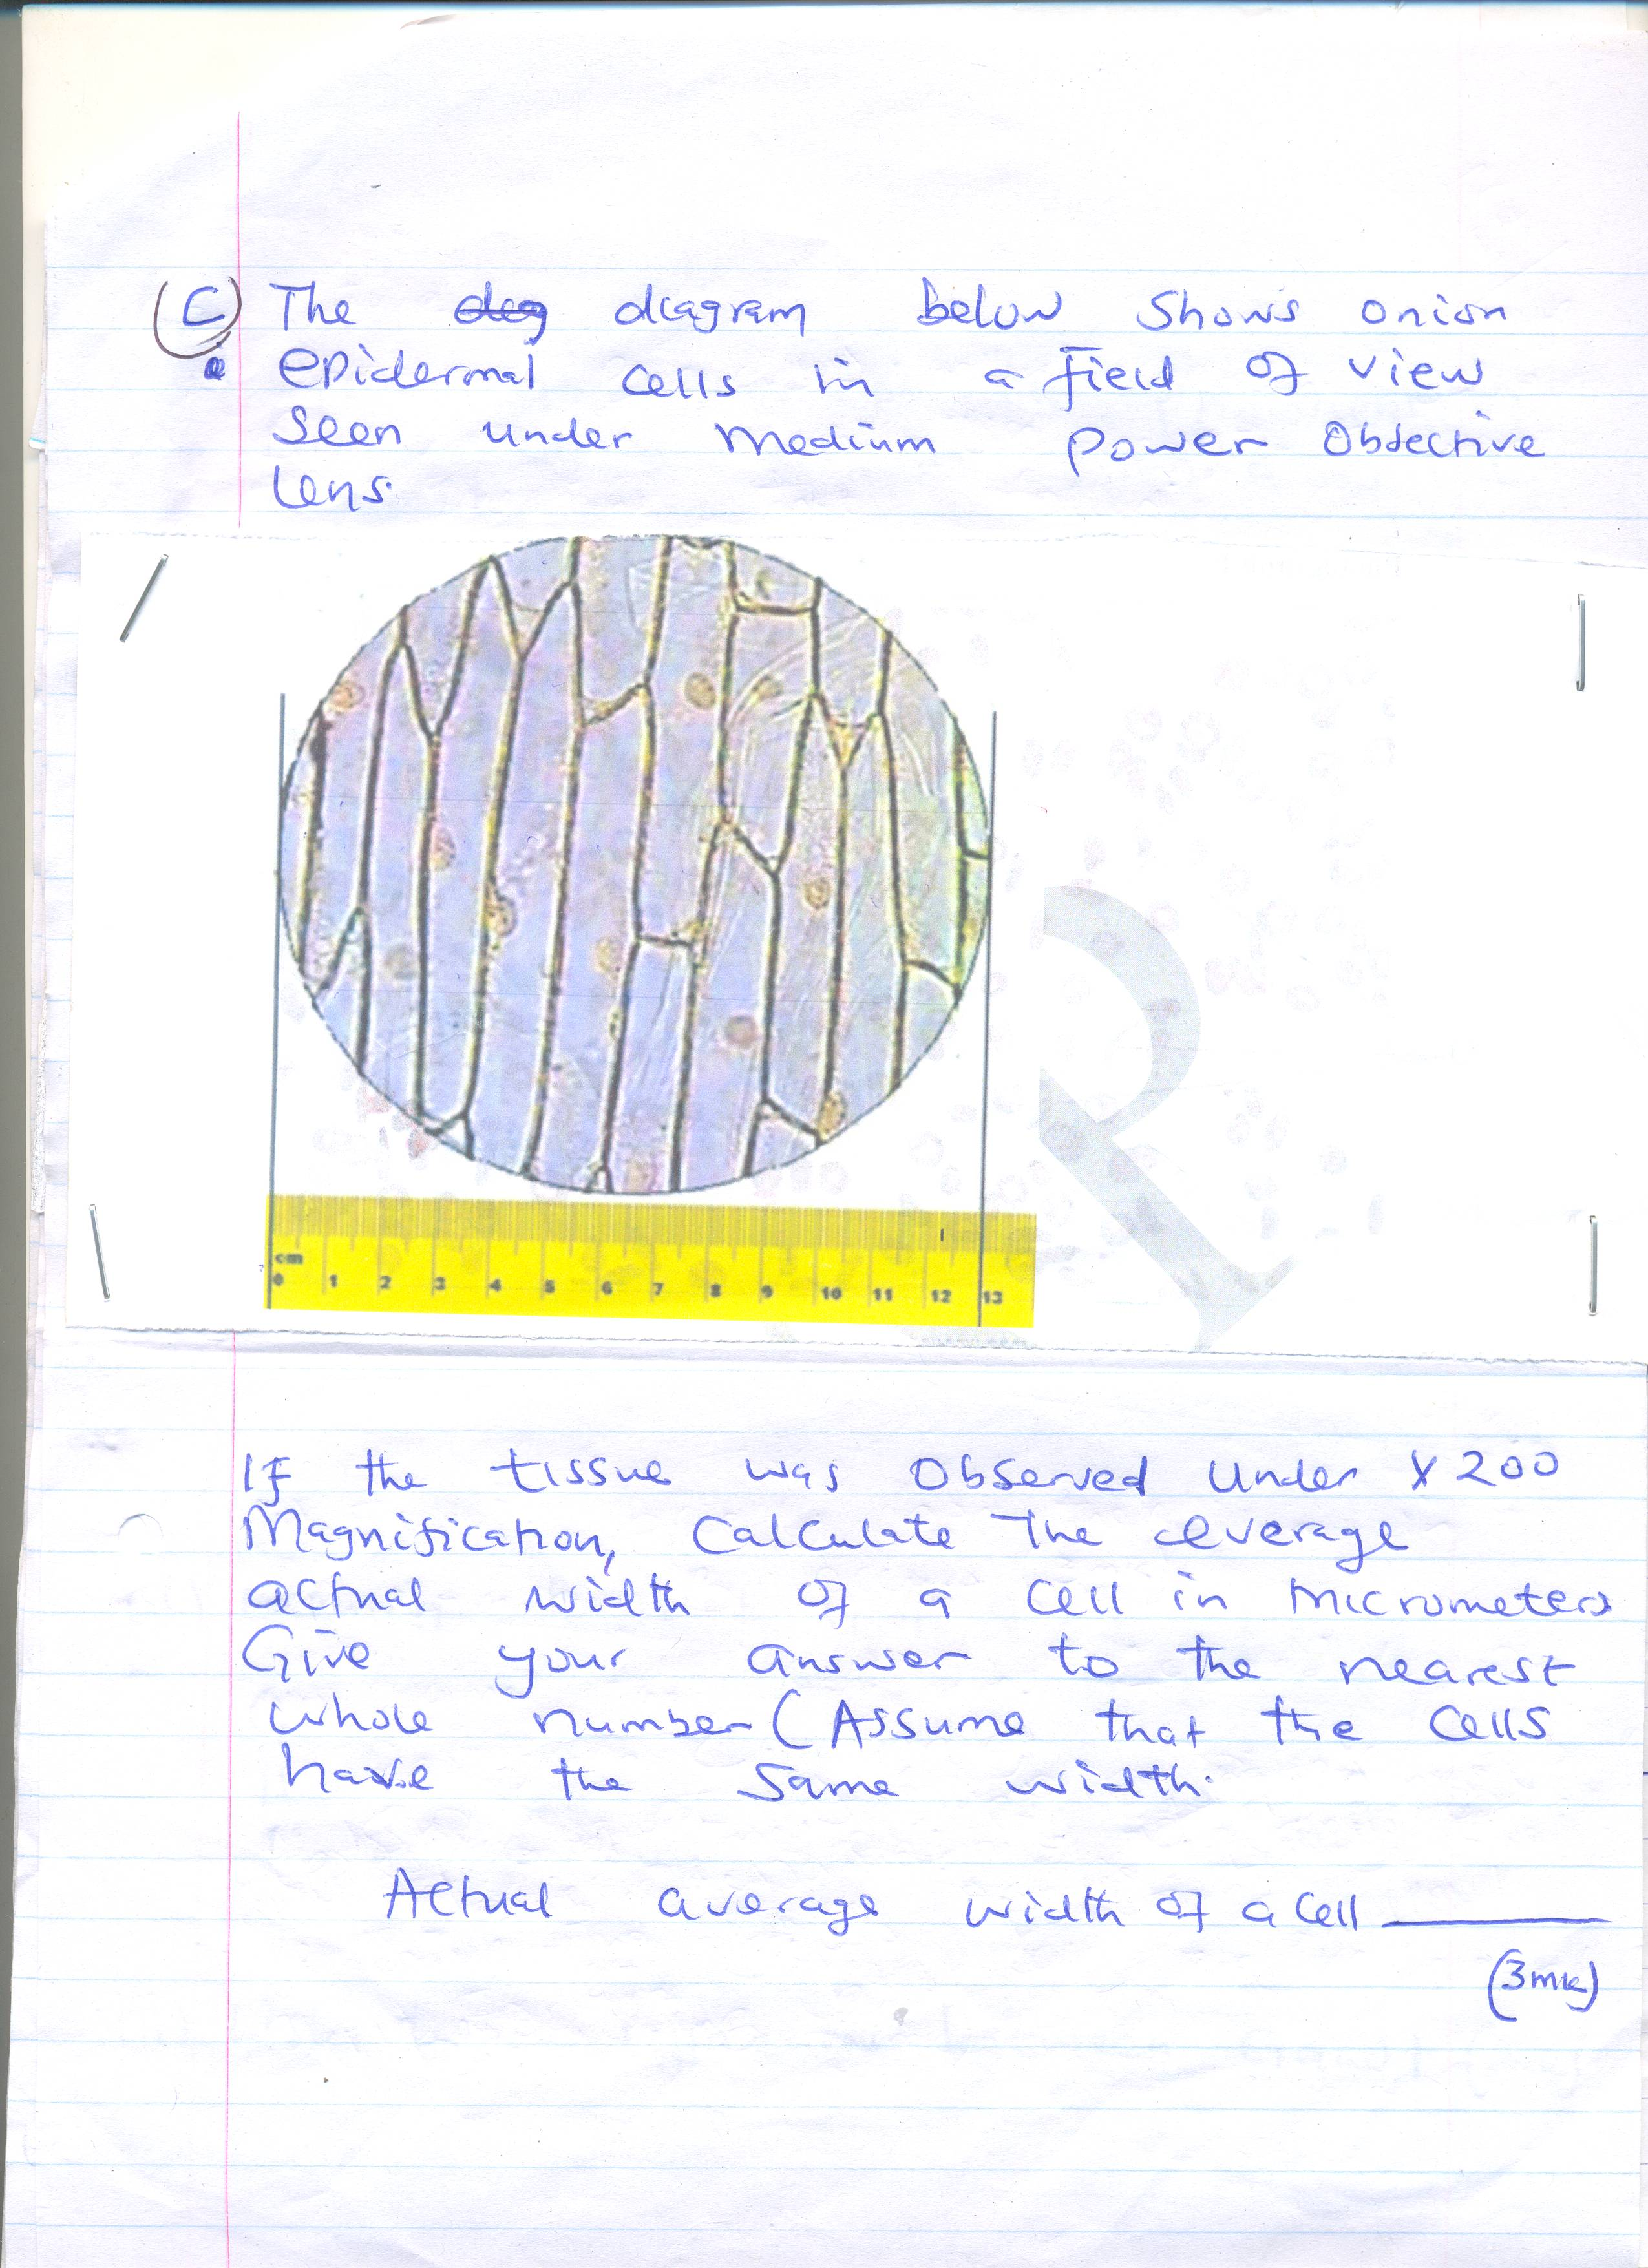 (C) The deg diagram below shows onion
epidermal cells in a field of view
seen under medium power objective
lens.
cm
0 1 2 3 4 5 6 7 8 9 10 11 12 13
If the tissue was observed under X 200
Magnification, Calculate the average
actual width of a cell in micrometers
Give your answer to the nearest
whole number (Assume that the cells
have the same width.
Actual average width of a cell
(3mk)